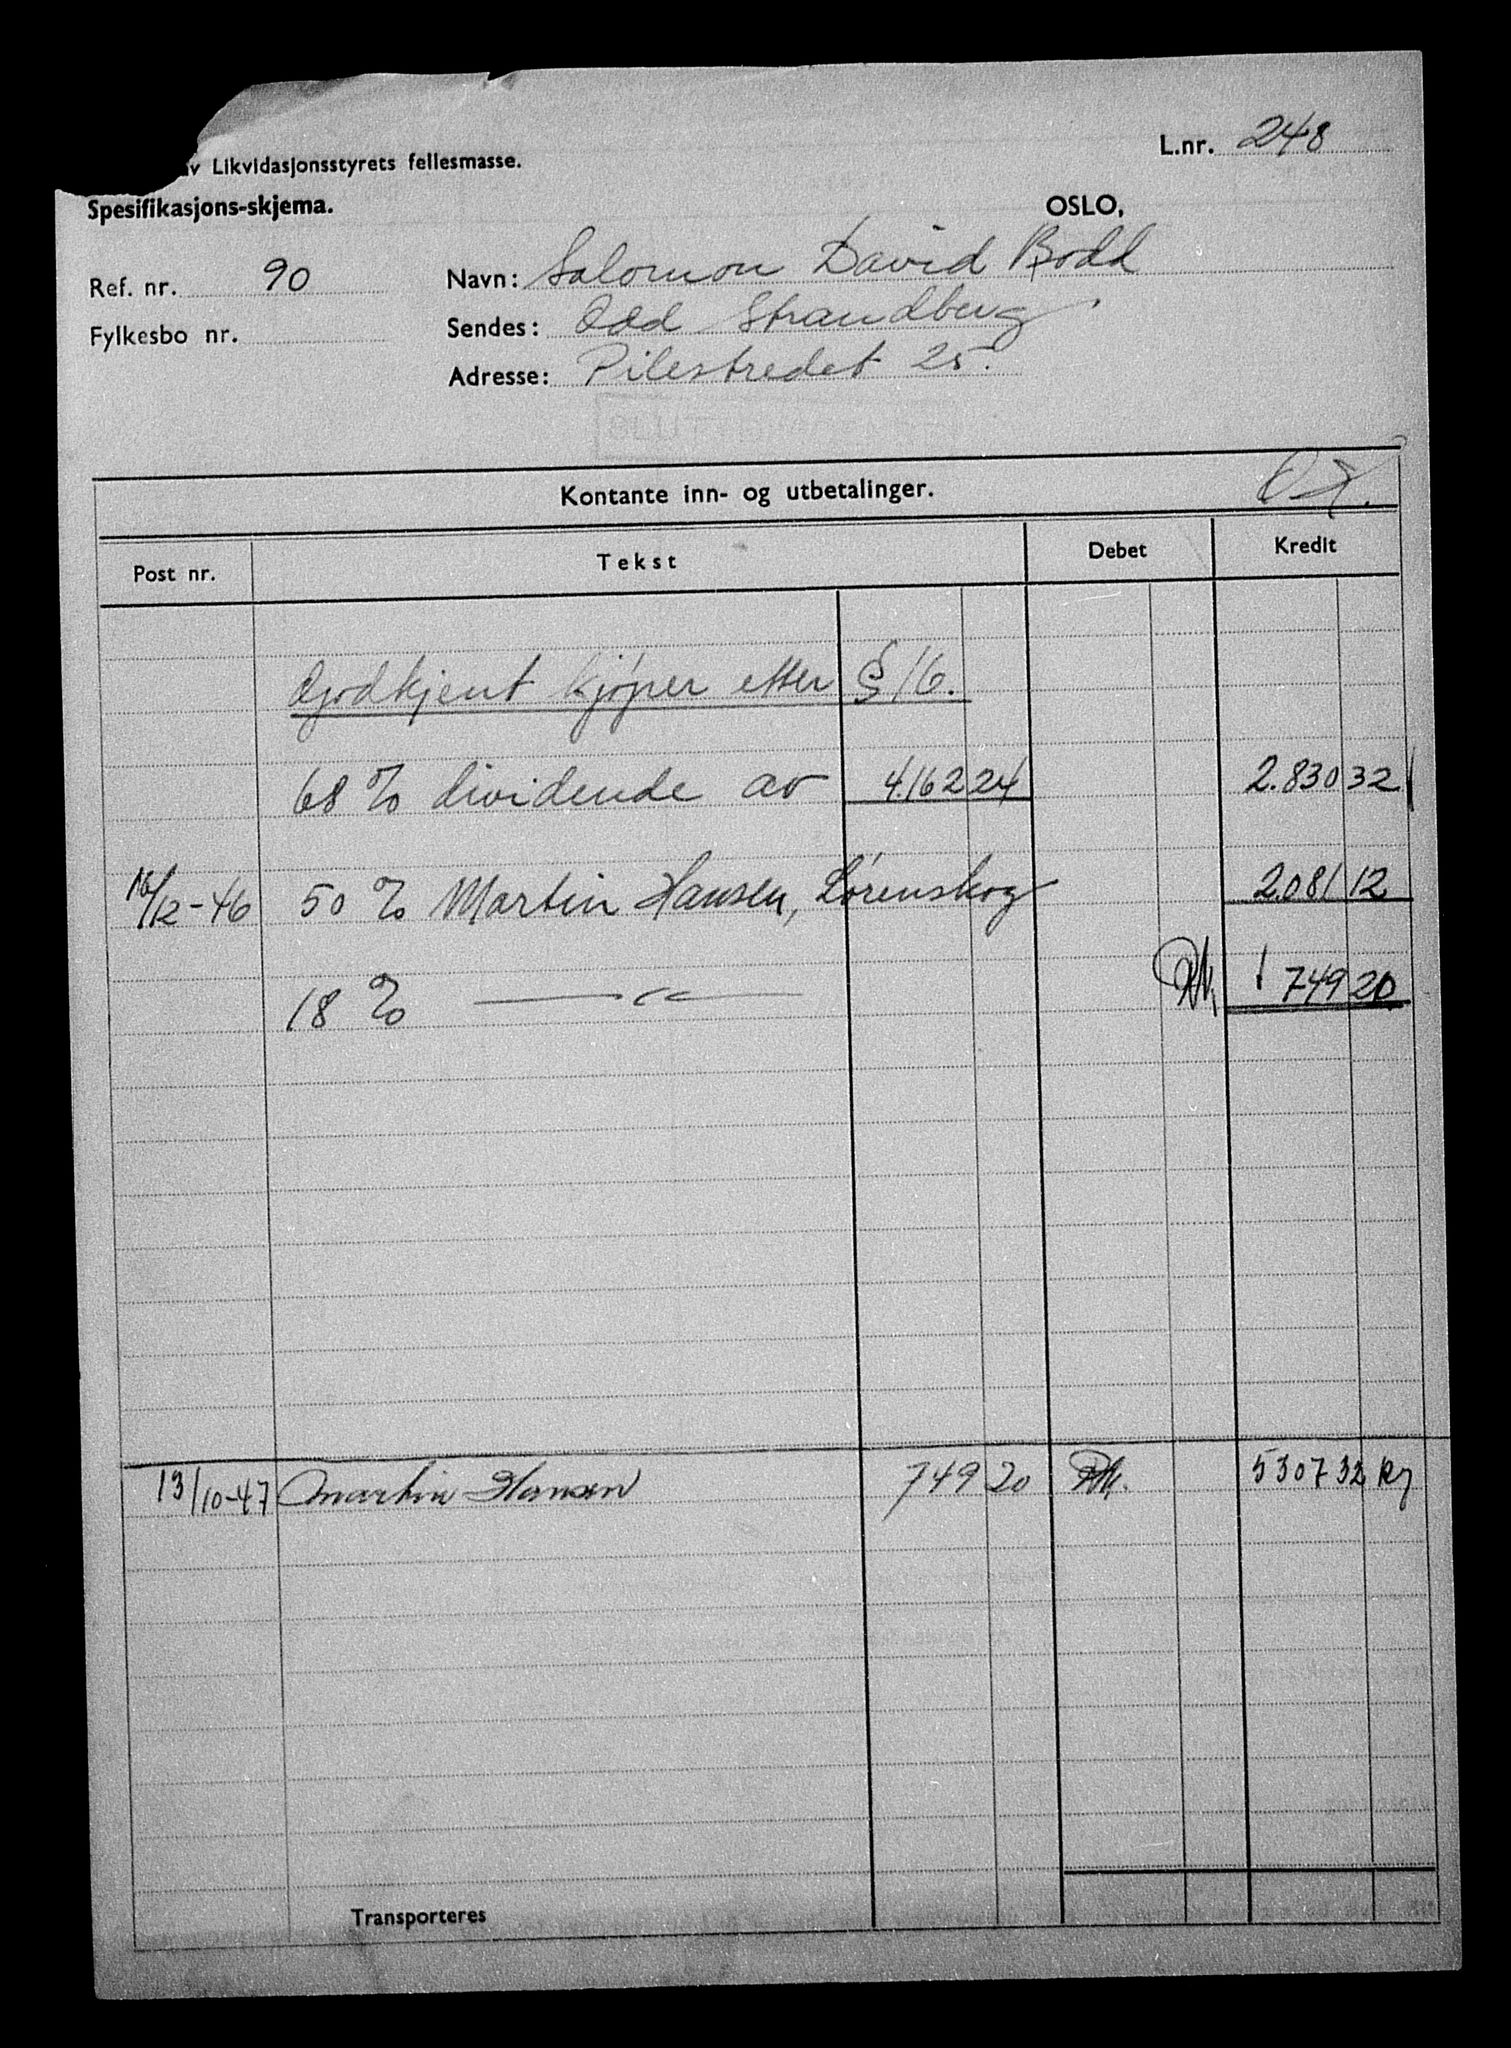 L.nr. 248
av Likvidasjonsstyrets fellesmasse.
Spesifikasjons-skjema.
OSLO,
Ref. nr. 90
Navn: Salomon David Bodd
Fylkesbo nr.
Sendes: Odd Strandberg
Adresse: Pilestredet 25.
Kontante inn- og utbetalinger.
Post nr. Tekst Debet Kredit
Godkjent kjøper etter § 16.
68 % dividende av 4.162 24 2.830 32
16/12-46 50 % Martin Hansen, Lørenskog 2.081 12
18 % —〃— 749 20
13/10-47 Martin Hansen 749 20 5307 32
Transporteres